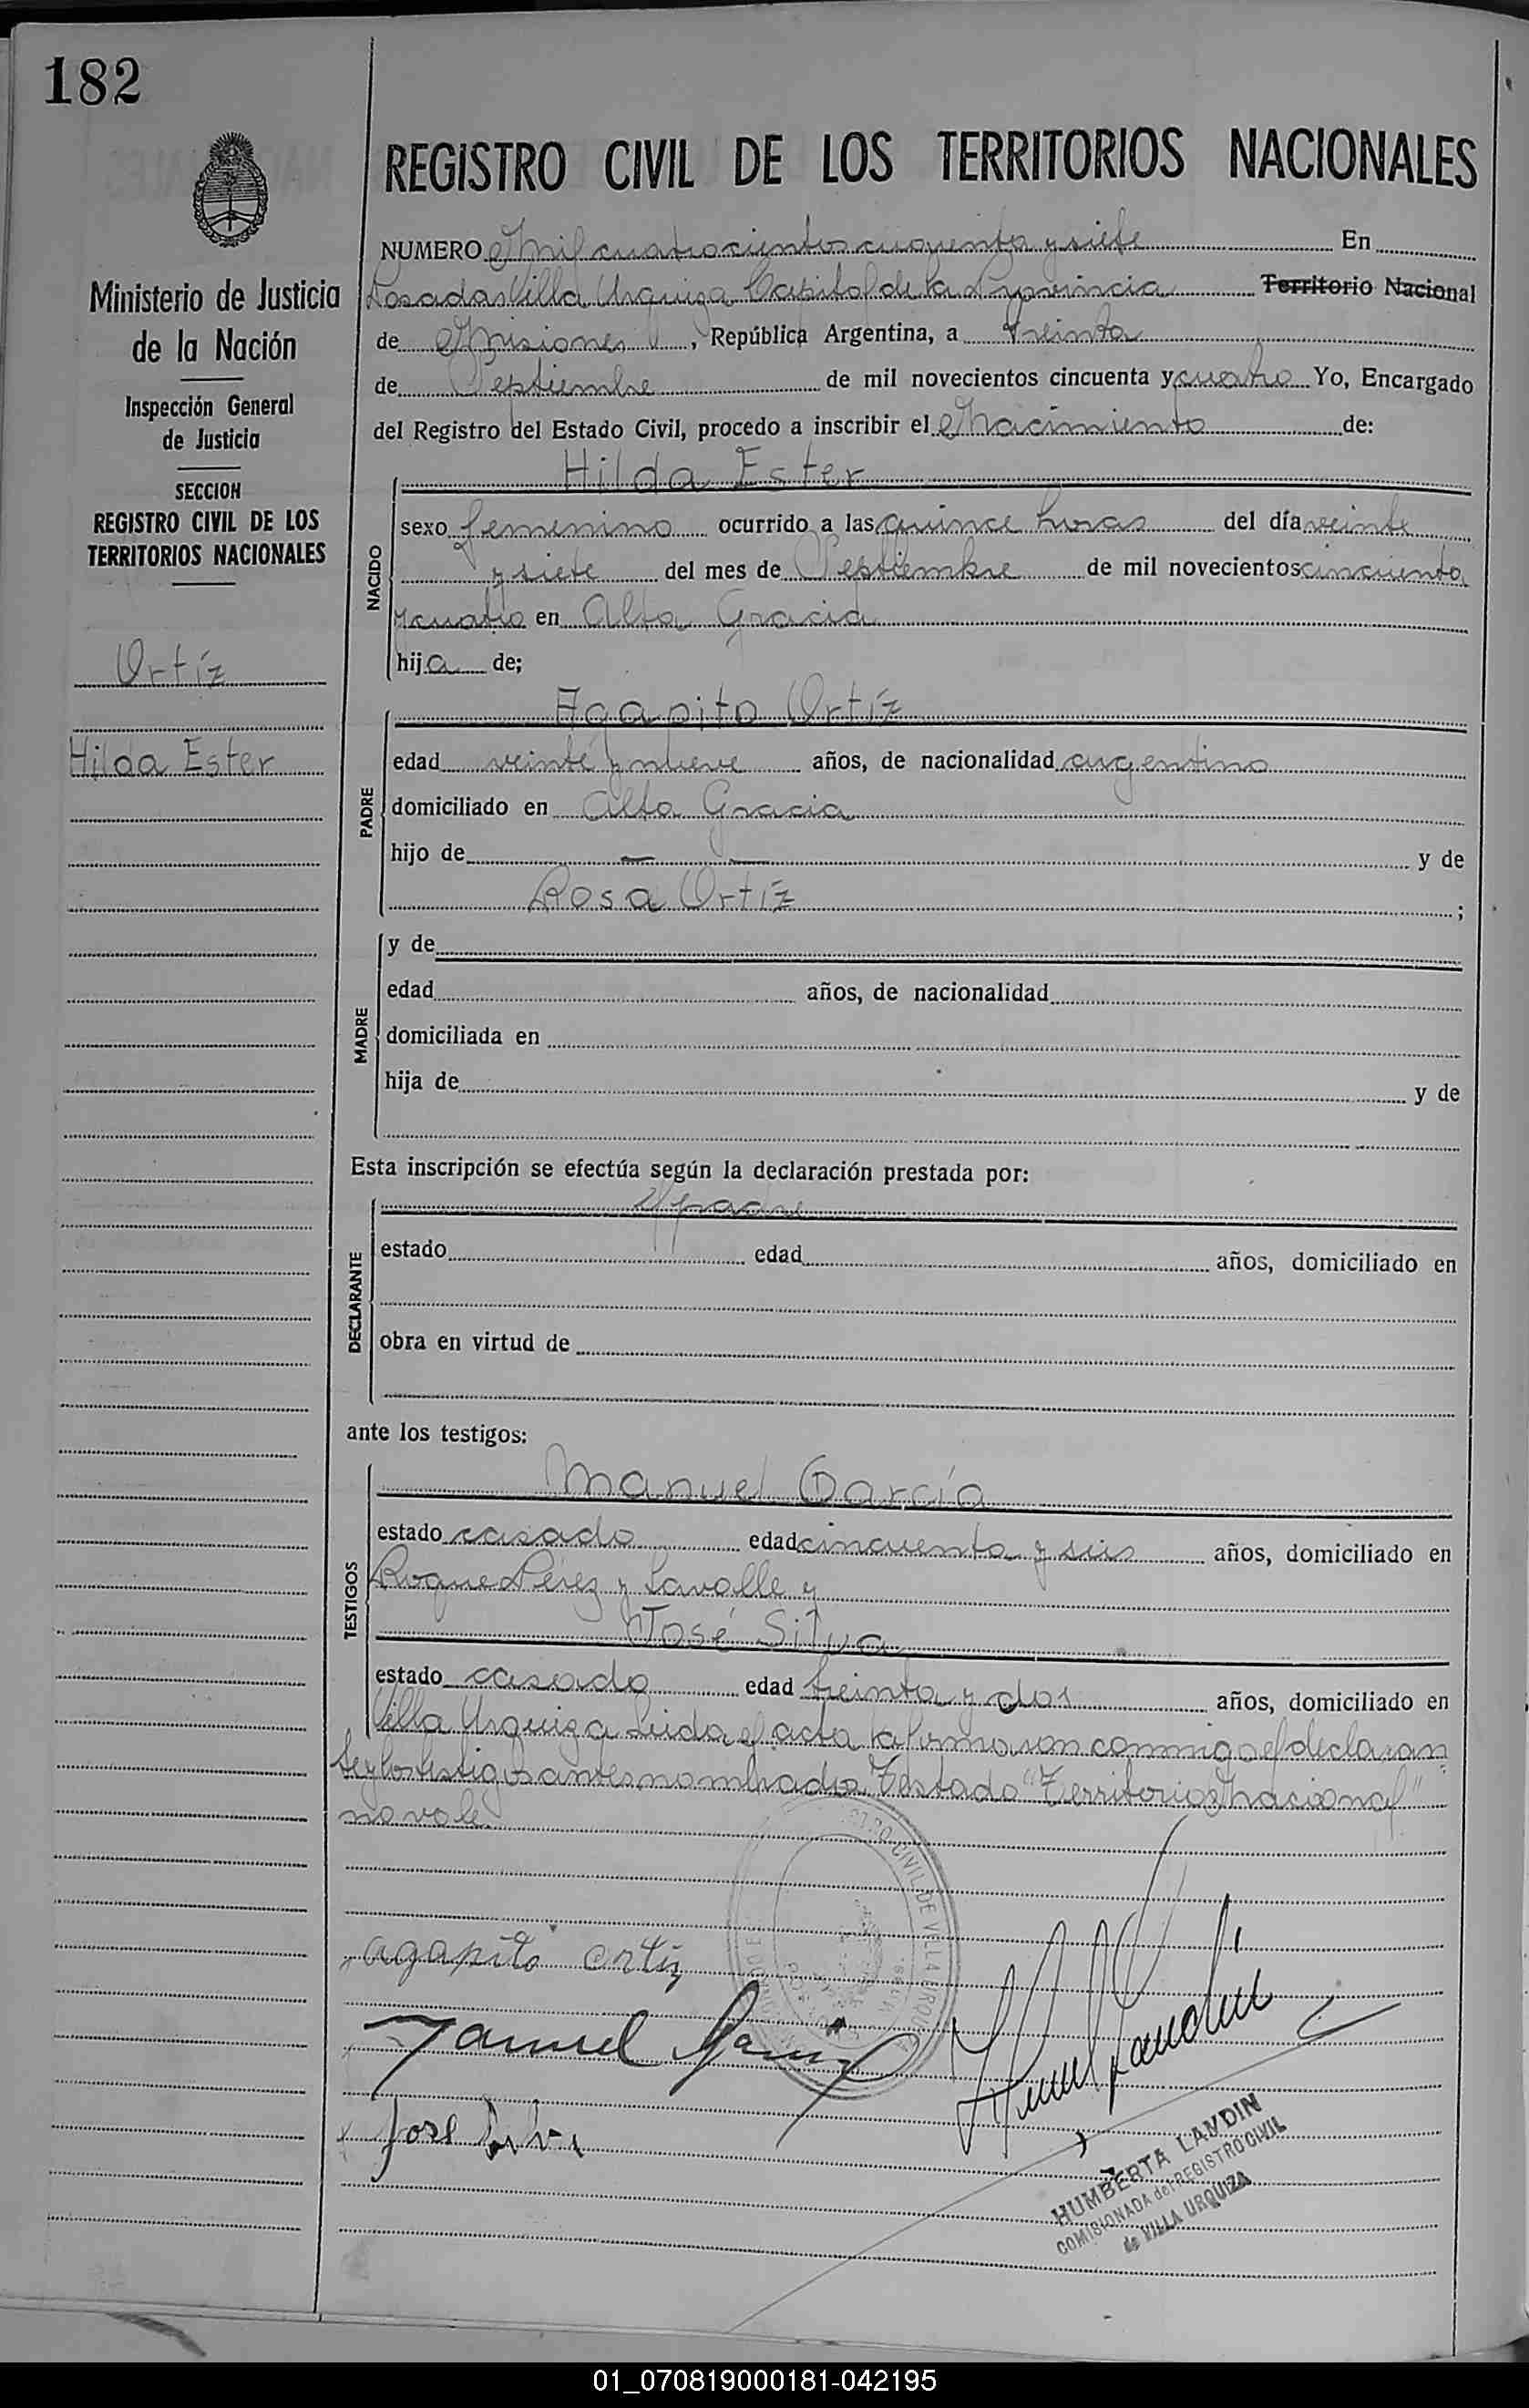 182
REGISTRO CIVIL DE LOS TERRITORIOS NACIONALES
Ministerio de Justicia
de la Nación
Inspección General
de Justicia
SECCION
REGISTRO CIVIL DE LOS
TERRITORIOS NACIONALES
Ortíz
Hilda Ester
NUMERO Mil cuatrocientos cuarenta y siete En
Posadas Villa Urquiza Capital de la Provincia Territorio Nacional
de Misiones, República Argentina, a treinta
de Septiembre de mil novecientos cincuenta y cuatro Yo, Encargado
del Registro del Estado Civil, procedo a inscribir el Nacimiento de:
NACIDO
Hilda Ester
sexo femenino ocurrido a las quince horas del día veinte
y siete del mes de Septiembre de mil novecientos cincuenta
y cuatro en Alta Gracia
hija de;
PADRE
Agapito Ortíz
edad veinte y nueve años, de nacionalidad argentino
domiciliado en Alta Gracia
hijo de — — y de
Rosa Ortíz ;
MADRE
y de
edad años, de nacionalidad
domiciliada en
hija de y de
Esta inscripción se efectúa según la declaración prestada por:
DECLARANTE
el padre
estado edad años, domiciliado en
obra en virtud de
ante los testigos:
TESTIGOS
Manuel García
estado casado edad cincuenta y seis años, domiciliado en
Roque Pérez y Lavalle y
José Silva
estado casado edad treinta y dos años, domiciliado en
Villa Urquiza Leida el acta la firmaron conmigo el declaran
te y los testigos antes nombrados Testado "Territorio Nacional"
no vale.
REGISTRO CIVIL DE VILLA URQUIZA
agapito ortiz
Manuel Garcia
José Silva
HUMBERTA LANDIN
COMISIONADA del REGISTRO CIVIL
de VILLA URQUIZA
01_070819000181-042195